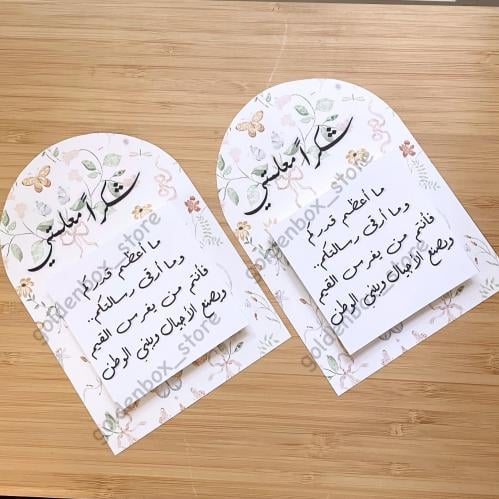 شكراً معلمتي
ما أعظم قدركم
وما أرقى رسالتكم..
فأنتم من يغرس القيم
ويصنع الأجيال ويبني الوطن
goldenbox_store
goldenbox_store
شكراً معلمتي
ما أعظم قدركم
وما أرقى رسالتكم..
فأنتم من يغرس القيم
ويصنع الأجيال ويبني الوطن
goldenbox_store
goldenbox_store